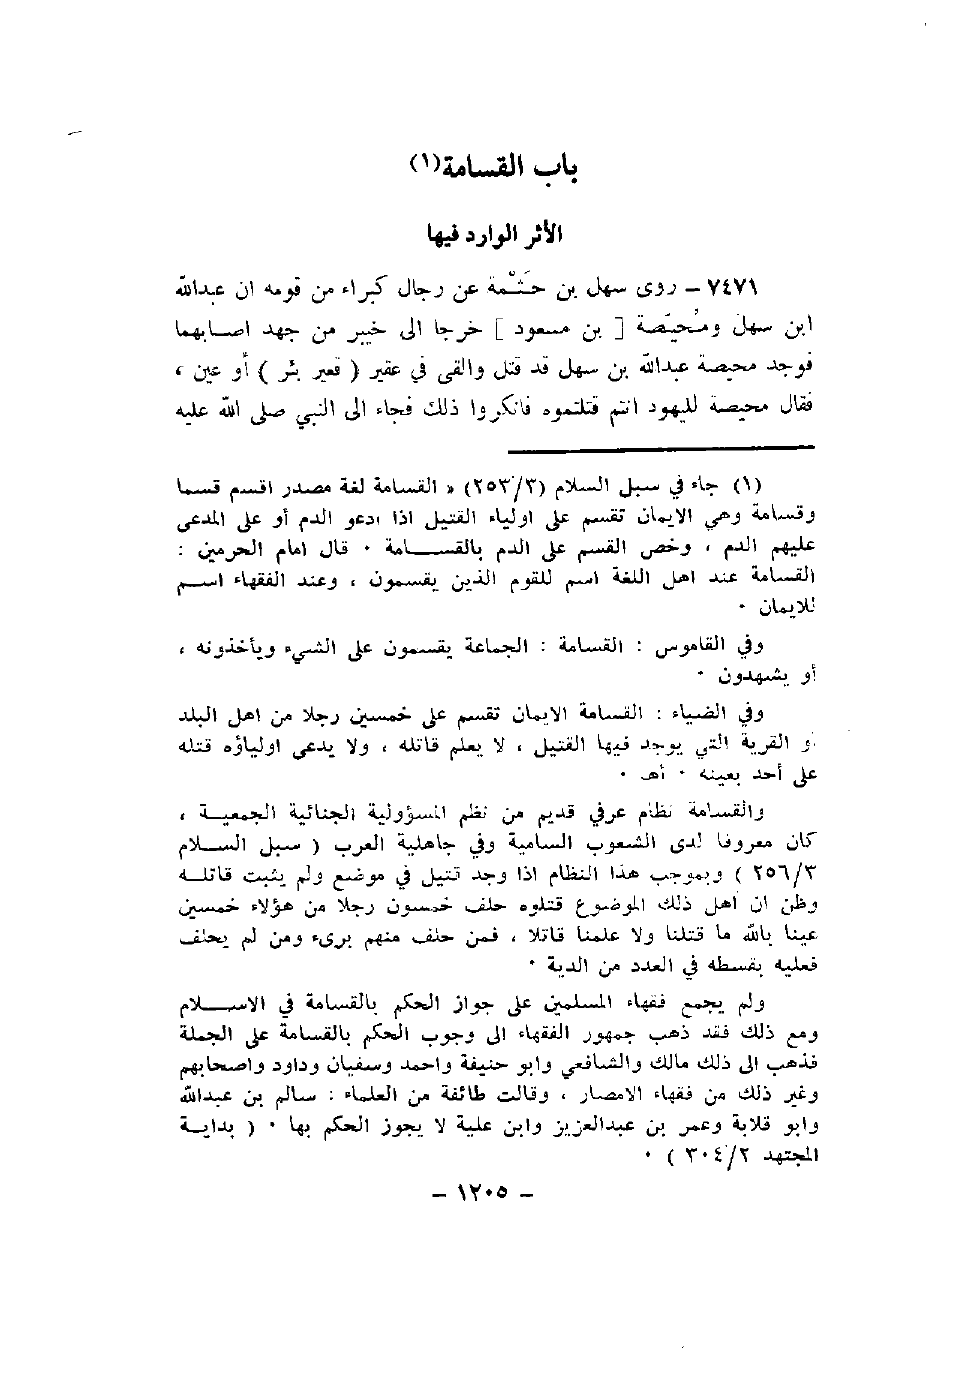 باب القسامة(١)
الأثر الوارد فيها
٧٤٧١ – روى سهل بن حَثَمْة عن رجال كبراء من قومه ان عبدالله
ابن سهل ومُحيّصة [ بن مسعود ] خرجا الى خيبر من جهد اصابهما
فوجد محيصة عبدالله بن سهل قد قتل والقى في عقير ( قعير بئر ) أو عين ،
فقال محيصة لليهود انتم قتلتموه فانكروا ذلك فجاء الى النبي صلى الله عليه
(١) جاء في سبل السلام (٢٥٣/٣) « القسامة لغة مصدر اقسم قسما
وقسامة وهي الايمان تقسم على اولياء القتيل اذا ادعو الدم أو على المدعى
عليهم الدم ، وخص القسم على الدم بالقسامة ٠ قال امام الحرمين :
القسامة عند اهل اللغة اسم للقوم الذين يقسمون ، وعند الفقهاء اسم
للايمان ٠
وفي القاموس : القسامة : الجماعة يقسمون على الشيء ويأخذونه ،
أو يشهدون ٠
وفي الضياء : القسامة الايمان تقسم على خمسين رجلا من اهل البلد
او القرية التي يوجد فيها القتيل ، لا يعلم قاتله ، ولا يدعى اولياؤه قتله
على أحد بعينه ٠ أهـ ٠
والقسامة نظام عرفي قديم من نظم المسؤولية الجنائية الجمعية ،
كان معروفا لدى الشعوب السامية وفي جاهلية العرب ( سبل السلام
٢٥٦/٣ ) وبموجب هذا النظام اذا وجد قتيل في موضع ولم يثبت قاتله
وظن ان أهل ذلك الموضوع قتلوه حلف خمسون رجلا من هؤلاء خمسين
يمينا بالله ما قتلنا ولا علمنا قاتلا ، فمن حلف منهم برىء ومن لم يحلف
فعليه بقسطه في العدد من الدية ٠
ولم يجمع فقهاء المسلمين على جواز الحكم بالقسامة في الاسلام
ومع ذلك فقد ذهب جمهور الفقهاء الى وجوب الحكم بالقسامة على الجملة
فذهب الى ذلك مالك والشافعي وابو حنيفة واحمد وسفيان وداود واصحابهم
وغير ذلك من فقهاء الامصار ، وقالت طائفة من العلماء : سالم بن عبدالله
وابو قلابة وعمر بن عبدالعزيز وابن علية لا يجوز الحكم بها ٠ ( بداية
المجتهد ٣٠٤/٢ ) ٠
– ١٢٠٥ –